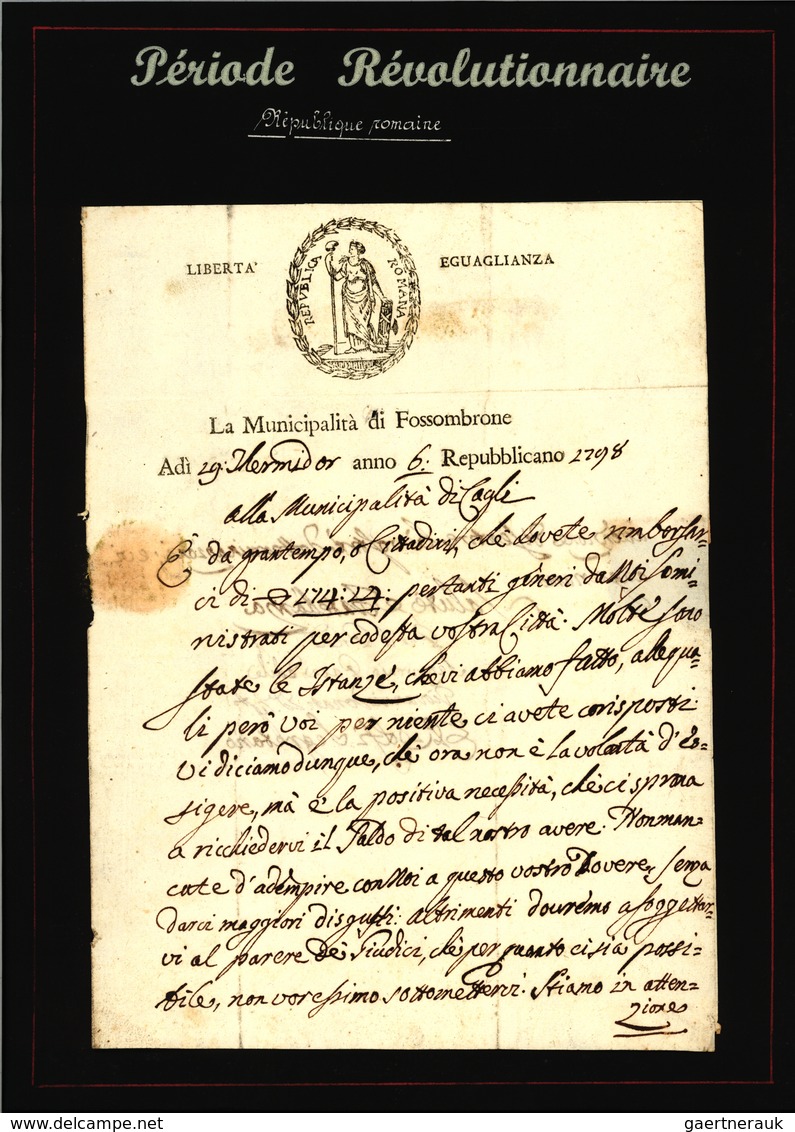 Période Révolutionnaire
République romaine
LIBERTA'
REPVBLICA ROMANA
EGUAGLIANZA
La Municipalità di Fossombrone
Adì 29. Termidor anno 6. Repubblicano 1798
alla Municipalità di Cagli
È da gran tempo, o Cittadini, chè dovete rimborsar-
ci di 174:14: per tanti gineri da Noi somi-
nistrati per codesta vostra Città. Molte sono
state le Istanze, che vi abbiamo fatto, alle qua-
li però voi per niente ci avete corisposti:
Vi diciamo dunque, chè ora non è la volontà d'es-
sigere, mà è la positiva necessità, chè ci sprona
a ricchiedervi il Saldo di tal nostro avere. Non man-
cate d'adempire con Noi a questo vostro Dovere, senza
darci maggiori disgusti: altrimenti douremo assoggettar-
vi al parere de' Giudici, chè per quanto ci sia possi-
bile, non voressimo sottomettervi. Stiamo in atten-
zione
delcampe.net
gaertnerauk